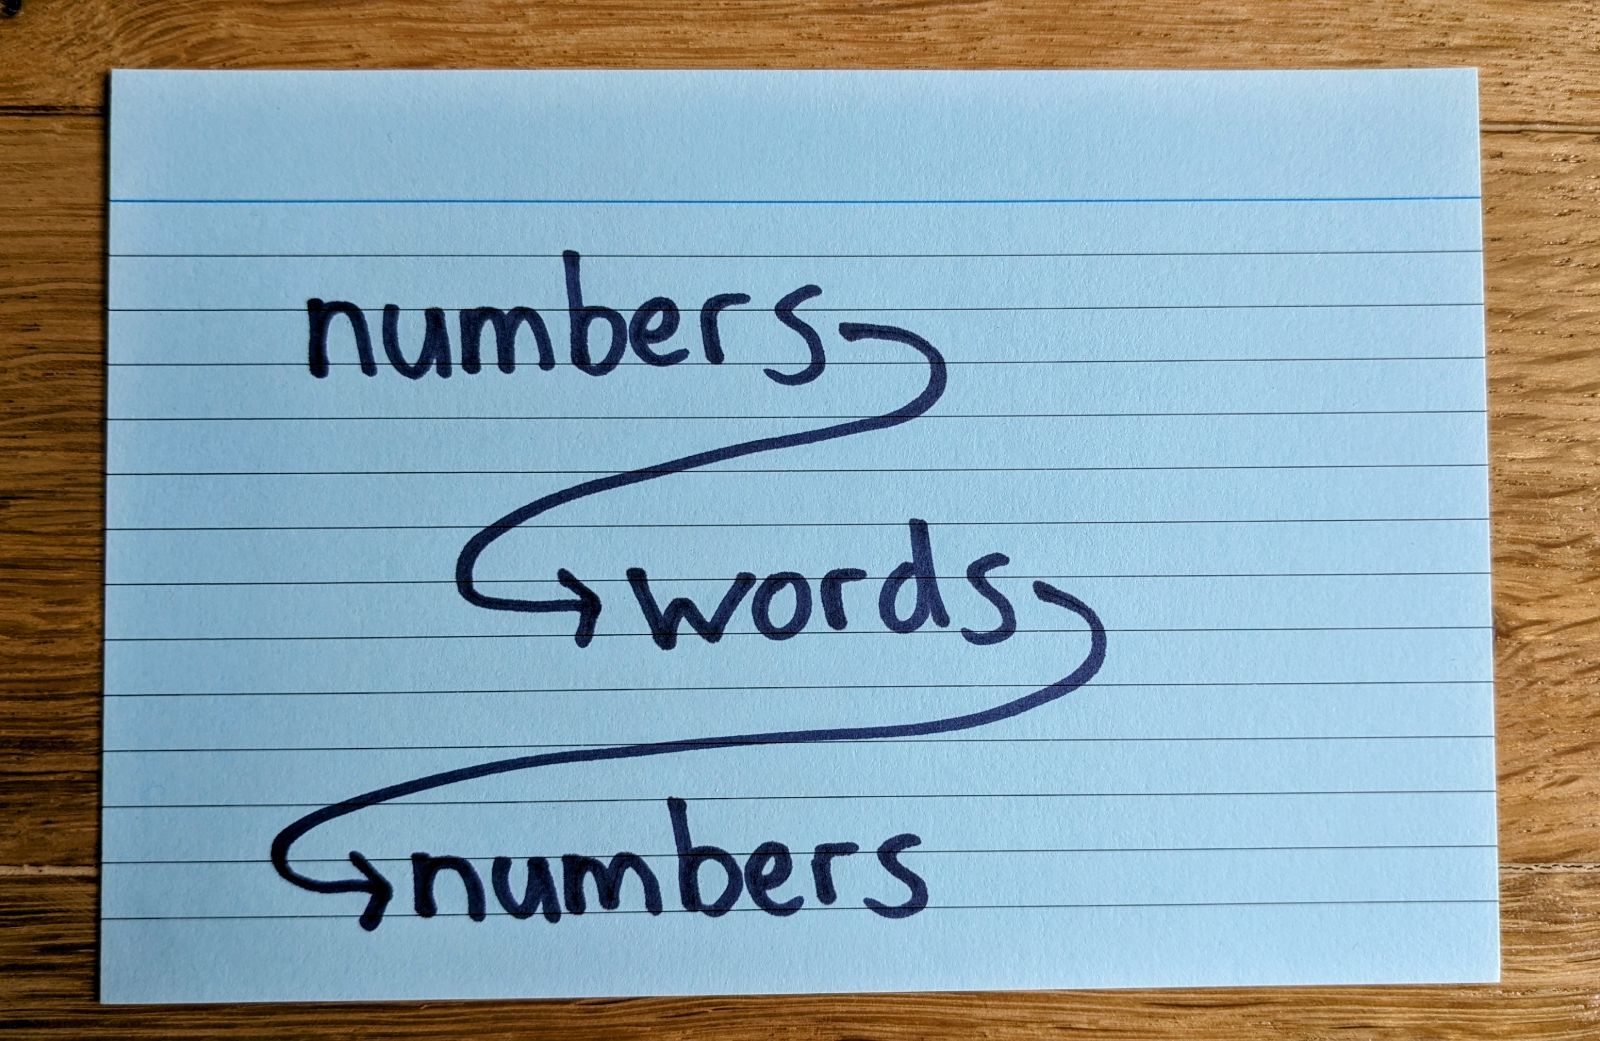 numbers
words
numbers